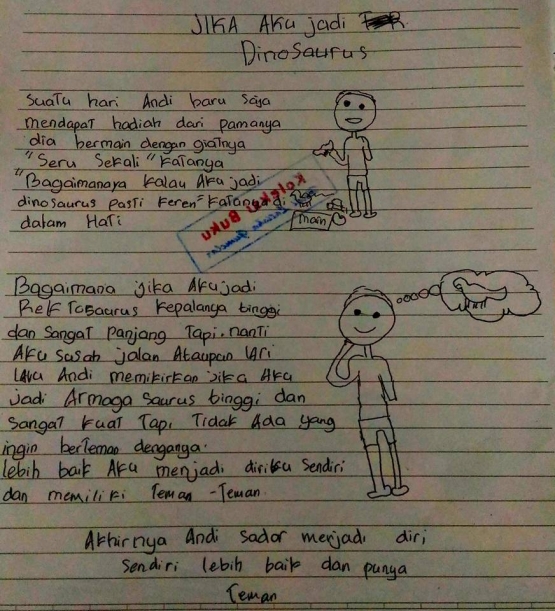 JIKA AKU jadi
Dinosaurus
Suatu hari Andi baru saja
mendapat hadiah dari pamanya
dia bermain dengan giatnya
"Seru Sekali" Katanya
"Bagaimanaya kalau Aku jadi
dinosaurus pasti keren" Katanya di
dalam Hati
main
Koleksi Buku
Bagaimana jika Aku jadi
kepalanya tinggi
dan sangat panjang Tapi. nanti
Aku susah jalan Ataupun lari
lalu Andi memikirkan jika Aku
jadi Armaga saurus tinggi dan
sangat kuat Tapi Tidak Ada yang
ingin berteman denganya.
lebih baik Aku menjadi diriku sendiri
dan memiliki Teman -Teman.
Akhirnya Andi sadar menjadi diri
sendiri lebih baik dan punya
Teman